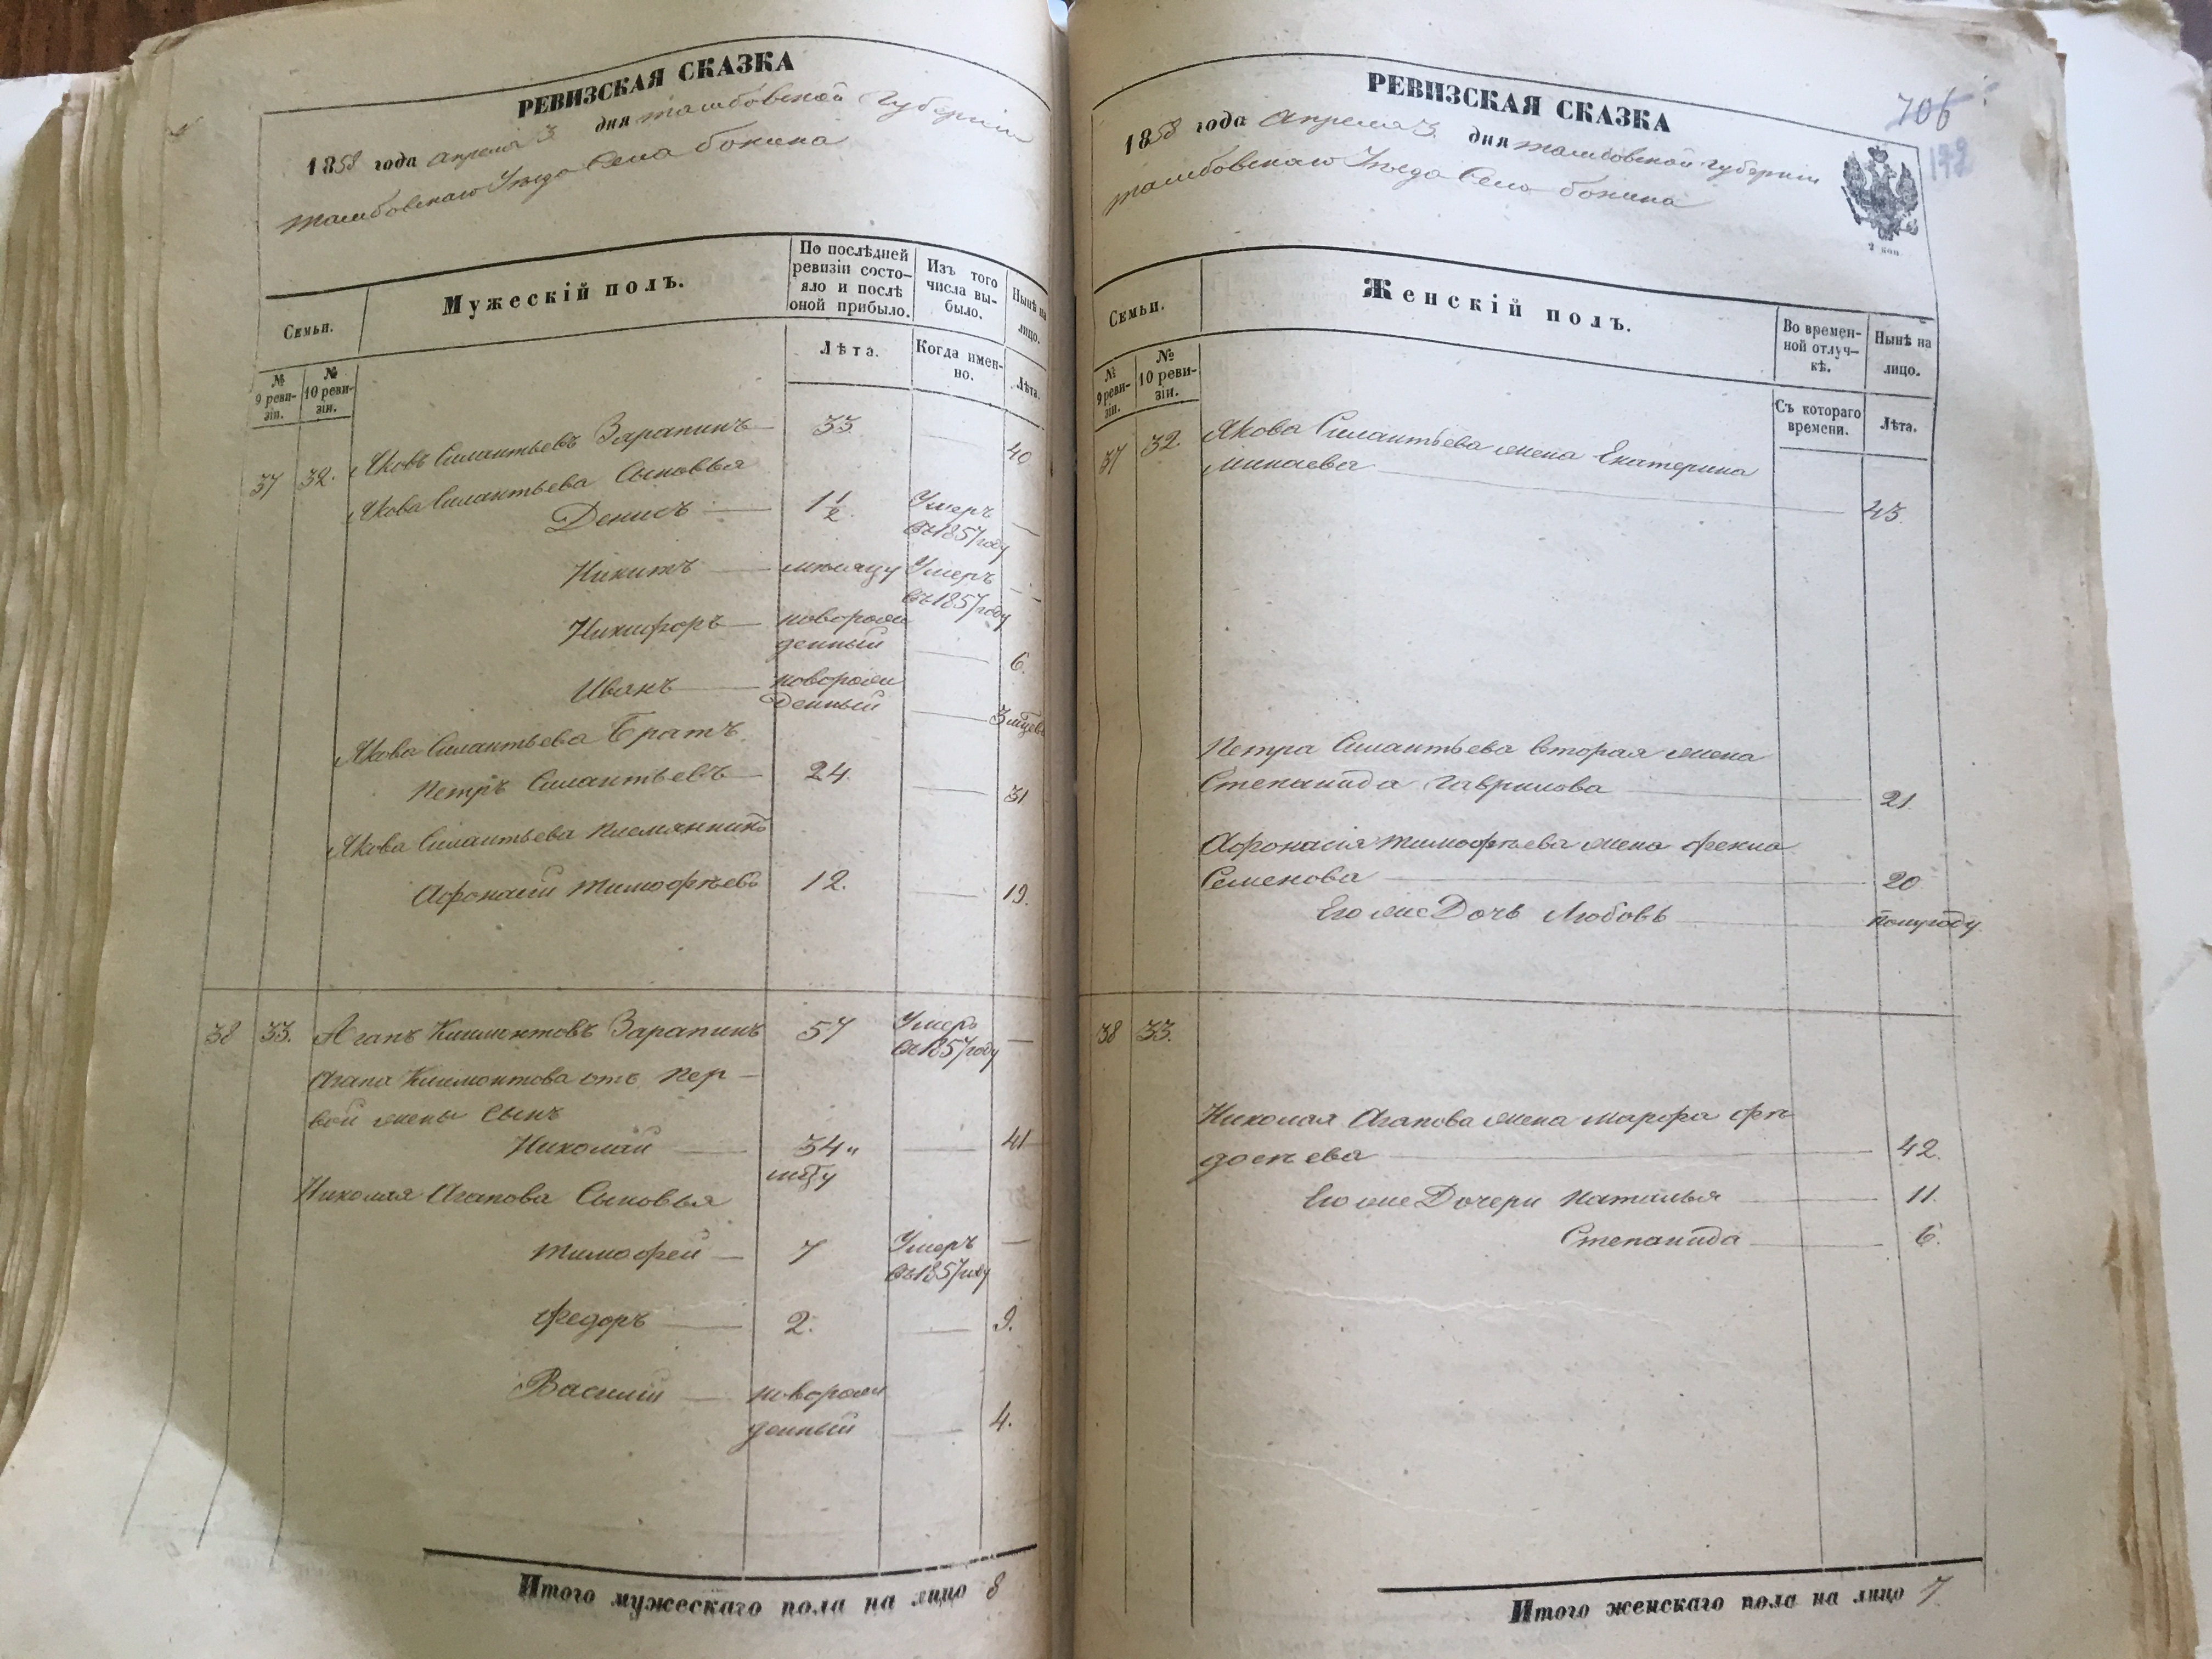 РЕВИЗСКАЯ СКАЗКА
1858 года апреля 3 дня тамбовской губернии
тамбовскаго Уезда Села бокина
Семьи.
Мужескій полъ.
По послѣдней ревизіи состо-
яло и послѣ
оной прибыло.
Изъ того
числа вы-
было.
Нынѣ на
лицо.
№
9 реви-
зіи.
№
10 реви-
зіи.
Лѣта.
Когда имен-
но.
Лѣта.
37 32. Яковъ Силантьевъ Зарапинъ 33 40
Якова Силантьева Сыновья
Денисъ 1 1/2. Умеръ
въ 1857 году
Никитъ месяцу Умеръ
въ 1857 году
Никифоръ новорож
денный 6.
Иванъ новорож
денный 3 мцев
Якова Силантьева Братъ
Петръ Силантьевъ 24. 31
Якова Силантьева племянникъ
Афонасій тимофѣевъ 12. 19.
38 33. Агапъ Климонтовъ Зарапинъ 57 Умеръ
въ 1857 году
Агапа Климонтова отъ пер-
вой жены сынъ
Николай 34 и 41
мцу
Николая Агапова Сыновья
тимофей 7 Умеръ
въ 1857 году
Федоръ 2. 9.
Василій новорож
денный 4.
Итого мужескаго пола на лицо 8
РЕВИЗСКАЯ СКАЗКА
706
172
1858 года апреля 3. дня тамбовской губернии
тамбовскаго Уезда Села бокина
2 коп.
Семьи.
Женскій полъ.
Во времен-
ной отлуч-
кѣ.
Нынѣ на
лицо.
№
9 реви-
зіи.
№
10 реви-
зіи.
Съ котораго
времени.
Лѣта.
37 32. Якова Силантьева жена Екатерина
минаева 43.
Петра Силантьева вторая жена
Степанида гаврилова 21.
Афонасія тимофѣева жена фекла
Семенова 20
Его же Дочь Любовь полугоду
38 33.
Николая Агапова жена марфа фѣ
досѣева 42.
Его же Дочери наталья 11.
Степанида 6.
Итого женскаго пола на лицо 7